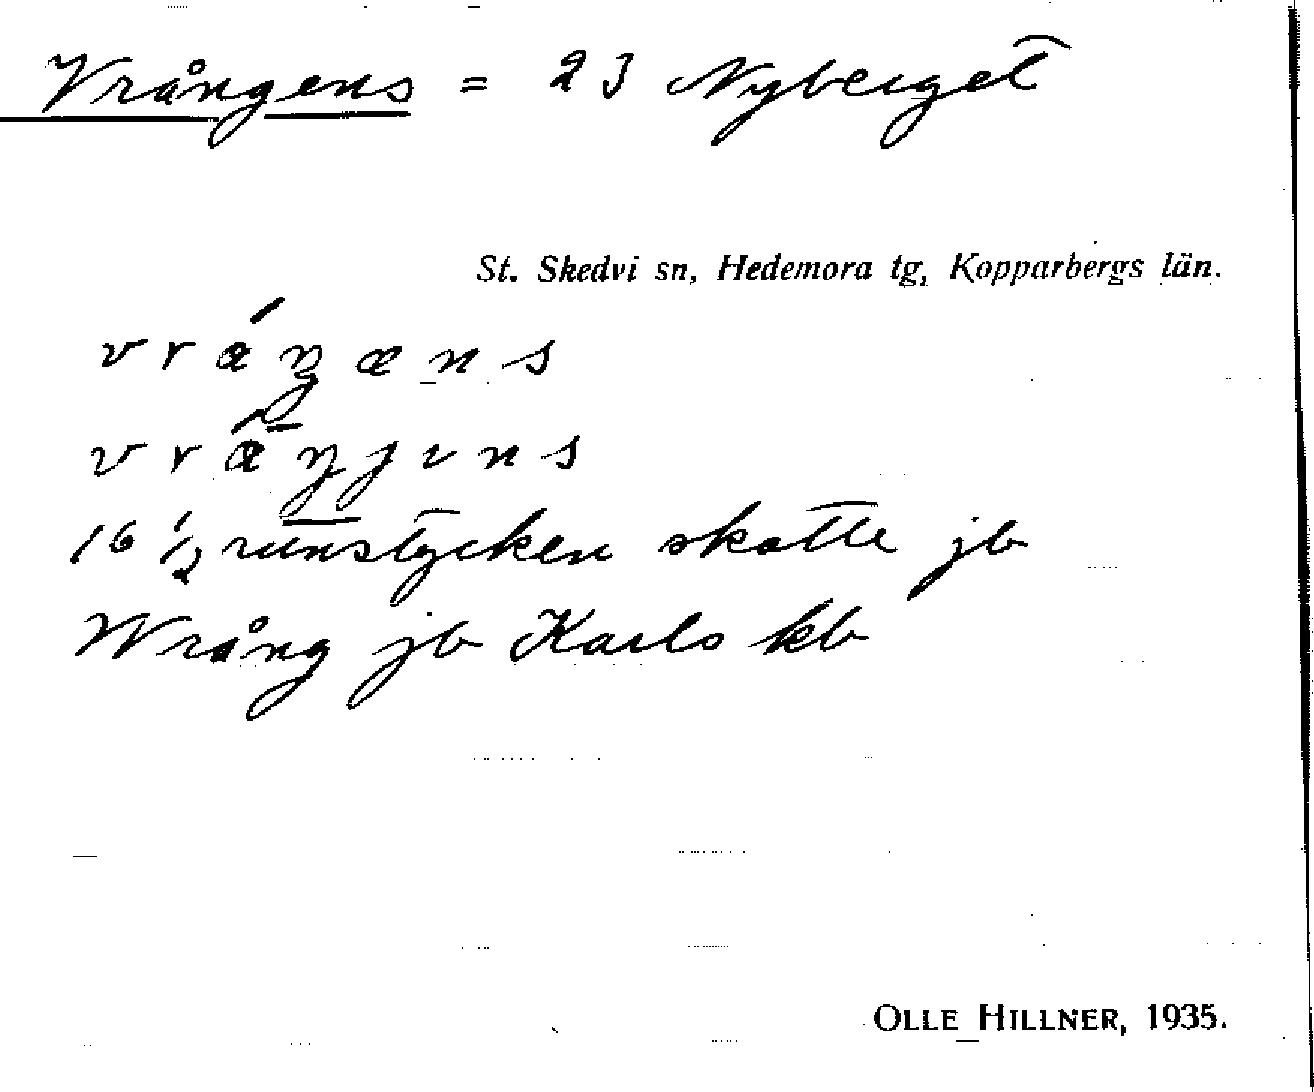 Vrångens = 23 Nyberget
St. Skedvi sn, Hedemora tg, Kopparbergs län.
vráŋæns
16 1/2 runstycken skatte jb
Wrång jb Karls kb
OLLE HILLNER, 1935.